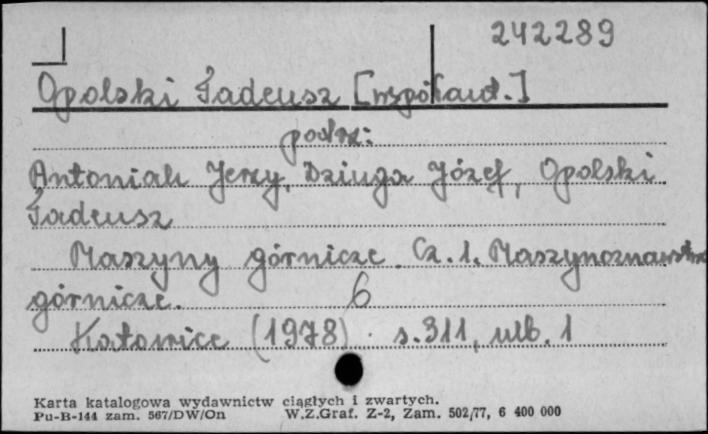 242289
Opolski Tadeusz [współaut.]
patrz:
Antoniak Jerzy, Dziuga Józef, Opolski
Tadeusz
Maszyny górnicze. Cz. 1. Maszynoznawstwo
górnicze. 6
Katowice (1978). s. 311, nlb. 1
Karta katalogowa wydawnictw ciągłych i zwartych.
Pu-B-144 zam. 567/DW/On W.Z.Graf. Z-2, Zam. 502/77, 6 400 000